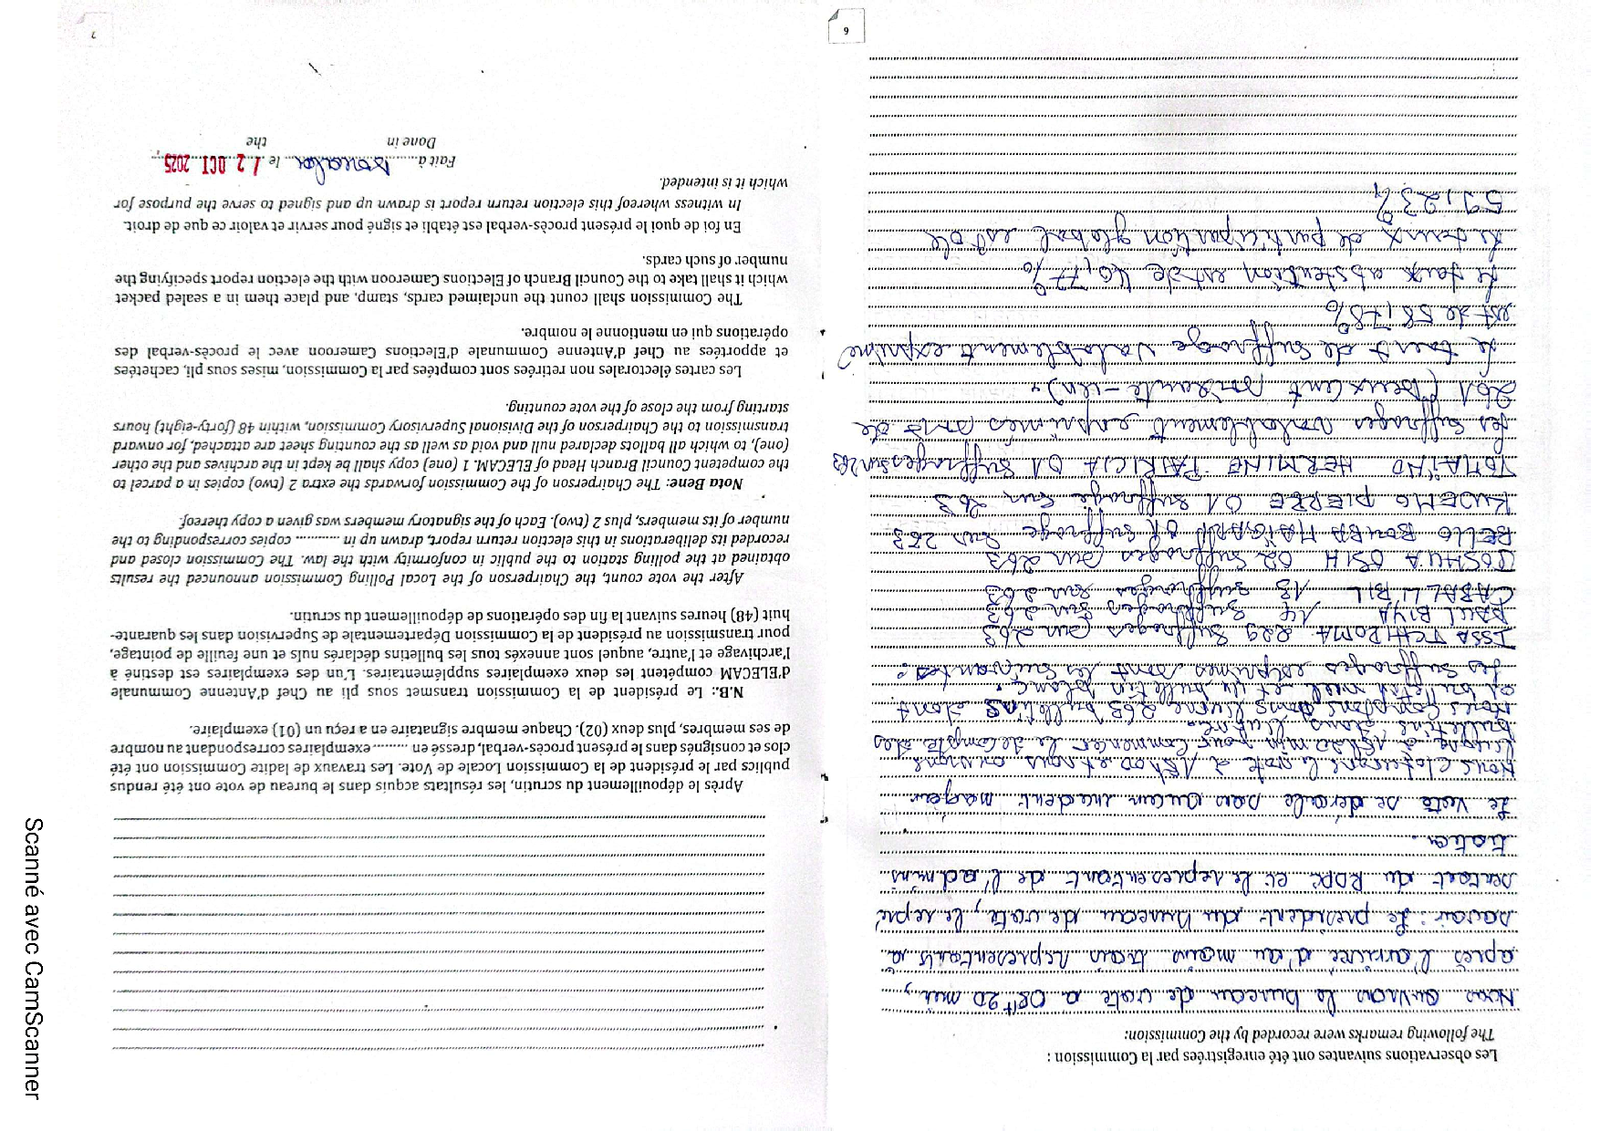 Les observations suivantes ont été enregistrées par la Commission :
The following remarks were recorded by the Commission:
Nous ouvrons le bureau de vote a 08H 20 min,
après l'arrivé d'au moins trois representants à
savoir : Le president du bureau de vote, le repré
sentant du RDPC et le representant de l'adminis
tration.
Le vote se déroule sans aucun incident majeur
Nous cloturons le vote à 18h00 et nous ouvrons
l'urne à 18h20 min pour commencer le decompte des
bulletins dans l'urne.
Nous comptons dans l'urne 263 bulletins dont
un bulletin nul et un bulletin blanc.
Les suffrages exprimés sont les suivantes :
ISSA TCHIROMA 229 suffrages sur 263
PAUL BIYA 14 suffrages sur 263
CABRAL LIBII 13 suffrages sur 263
JOSHUA OSIH 02 suffrages sur 263
BELLO BOUBA MAIGARI 01 suffrage sur 263
KWEMO PIERRE 01 suffrage sur 263
TOMAINO HERMINE PATRICIA 01 suffrages sur 263
Les suffrages valablement exprimés sont de
261 (Deux cent soixante-un).
Le taux de suffrage valablement exprimé
est de 58,78%
Le taux abstention est de 40,77%
Le taux de participation global est de
59,23%
6
Après le dépouillement du scrutin, les résultats acquis dans le bureau de vote ont été rendus
publics par le président de la Commission Locale de Vote. Les travaux de ladite Commission ont été
clos et consignés dans le présent procès-verbal, dressé en ......... exemplaires correspondant au nombre
de ses membres, plus deux (02). Chaque membre signataire en a reçu un (01) exemplaire.
N.B.: Le président de la Commission transmet sous pli au Chef d'Antenne Communale
d'ELECAM compétent les deux exemplaires supplémentaires. L'un des exemplaires est destiné à
l'archivage et l'autre, auquel sont annexés tous les bulletins déclarés nuls et une feuille de pointage,
pour transmission au président de la Commission Départementale de Supervision dans les quarante-
huit (48) heures suivant la fin des opérations de dépouillement du scrutin.
After the vote count, the Chairperson of the Local Polling Commission announced the results
obtained at the polling station to the public in conformity with the law. The Commission closed and
recorded its deliberations in this election return report, drawn up in ............ copies corresponding to the
number of its members, plus 2 (two). Each of the signatory members was given a copy thereof.
Nota Bene: The Chairperson of the Commission forwards the extra 2 (two) copies in a parcel to
the competent Council Branch Head of ELECAM, 1 (one) copy shall be kept in the archives and the other
(one), to which all ballots declared null and void as well as the counting sheet are attached, for onward
transmission to the Chairperson of the Divisional Supervisory Commission, within 48 (forty-eight) hours
starting from the close of the vote counting.
Les cartes électorales non retirées sont comptées par la Commission, mises sous pli, cachetées
et apportées au Chef d'Antenne Communale d'Elections Cameroon avec le procès-verbal des
opérations qui en mentionne le nombre.
The Commission shall count the unclaimed cards, stamp, and place them in a sealed packet
which it shall take to the Council Branch of Elections Cameroon with the election report specifying the
number of such cards.
En foi de quoi le présent procès-verbal est établi et signé pour servir et valoir ce que de droit.
In witness whereof this election return report is drawn up and signed to serve the purpose for
which it is intended.
Fait à ........ le 12 OCT 2025
Done in the
7
Scanné avec CamScanner